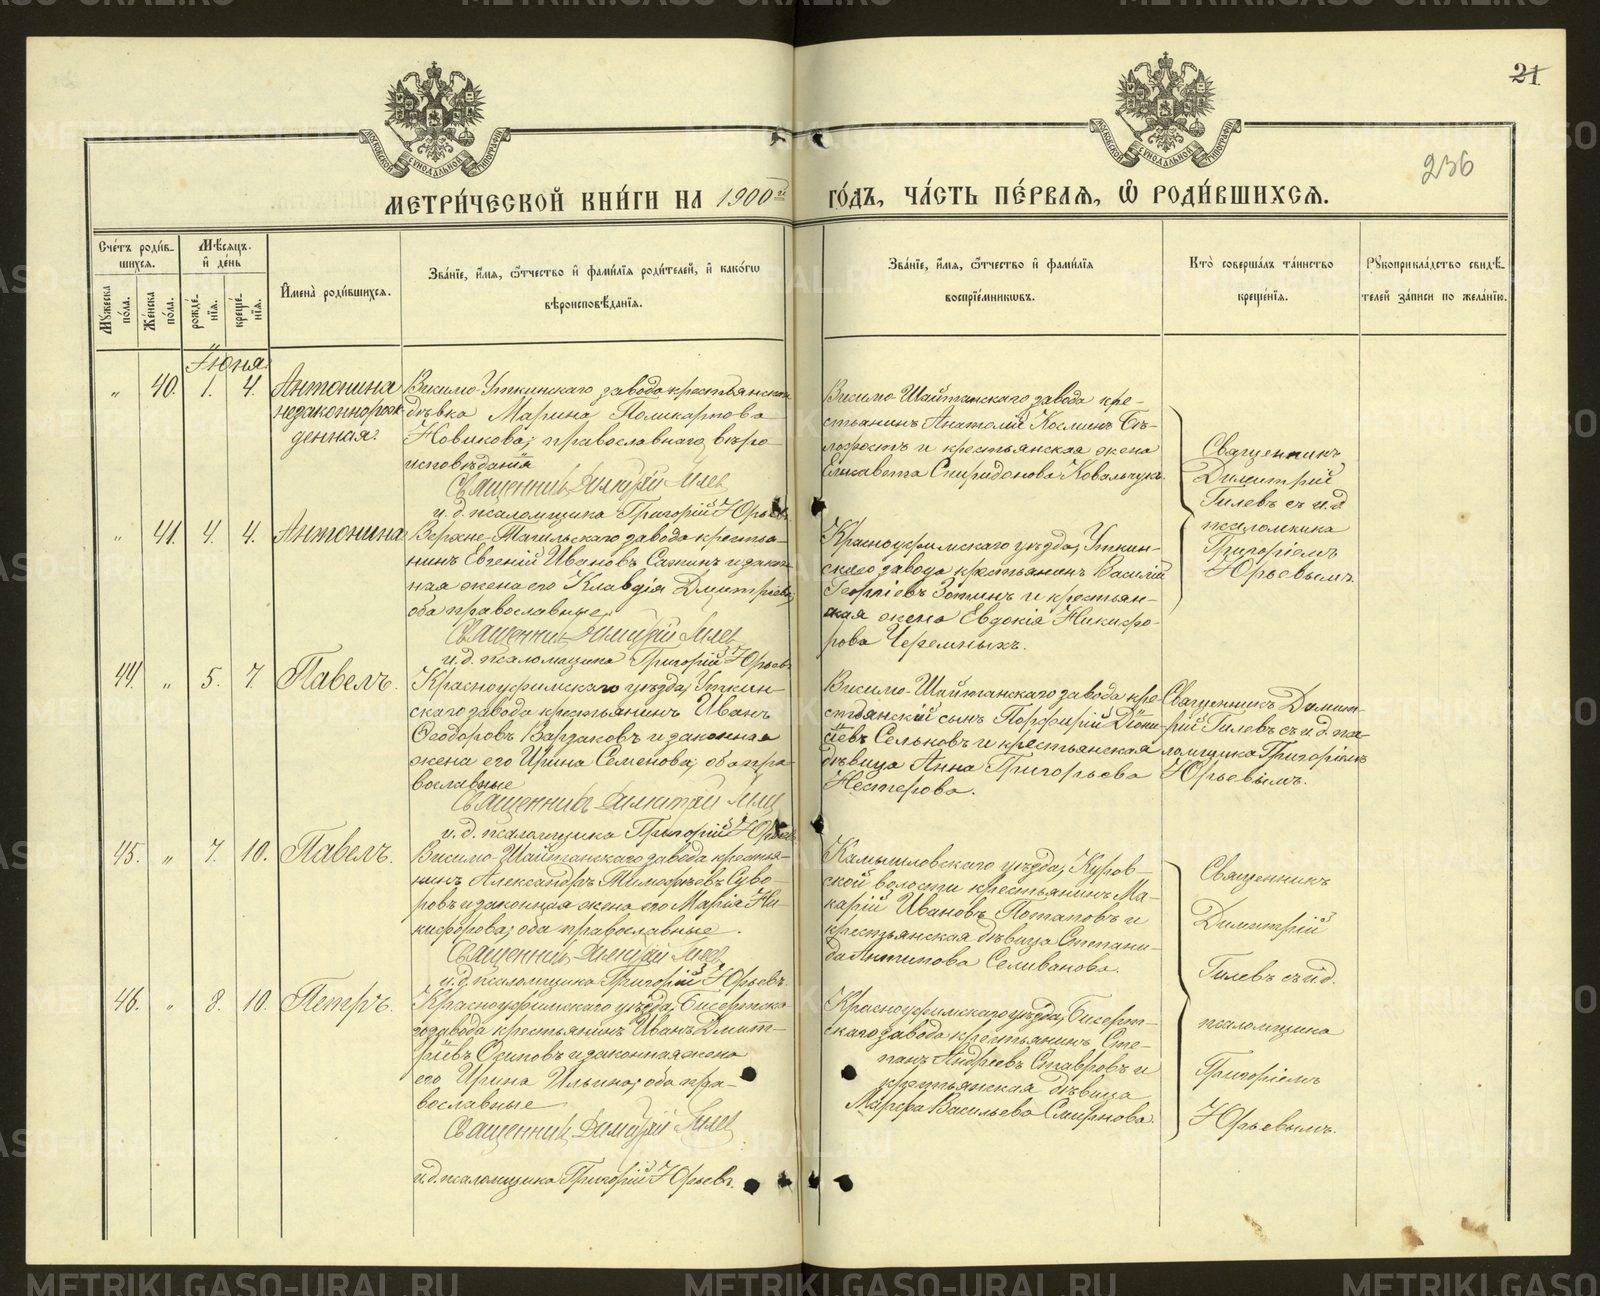 21
236
МЕТРИ́ЧЕСКОЙ КНИ́ГИ НА 1900й ГО́ДЪ, ЧА́СТЬ ПЕ́РВАѦ, Ѿ РОДИ́ВШИХСѦ.
Сче́тъ роди́в-
шихсѧ.
Мꙋ́жеска по́ла.
Же́нска по́ла.
Мѣ́сѧцъ.
и҆ де́нь
рожде́-нїѧ.
креще́-нїѧ.
И҆мена̀ роди́вшихсѧ.
Зва́нїе, и҆́мѧ, ѻ҆́тчество и҆ фами́лїѧ роди́телей, и҆ како́гѡ
вѣроисповѣ́данїѧ.
Зва́нїе, и҆́мѧ, ѻ҆́тчество и҆ фами́лїѧ
воспрїе́мникѡвъ.
Кто̀ соверша́лъ та́инство
креще́нїѧ.
Рꙋкоприкла́дство свидѣ́-
телей за́писи по жела́нїю.
Іюня
„ 40. 1. 4.
Антонина
незаконнорож-
денная.
Висимо-Уткинскаго завода крестьянская
дѣвка Марина Поликарпова
Новикова, православнаго вѣро-
исповѣданія
Священникъ Димитрій Гилевъ
и. д. псаломщика Григорій Юрьевъ
Висимо-Шайтанскаго завода кре-
стьянинъ Анатолій Космин Бѣ-
и крестьянская жена
Елисавета Спиридонова Ковальчукъ.
Священникъ
Димитрій
Гилевъ съ и. д.
псаломщика
Григоріемъ
Юрьевымъ.
„ 41. 4. 4.
Антонина
Верхне-Тагильскаго завода крестья-
нинъ Евгеній Ивановъ и закон-
ная жена его Клавдія Димитріева,
оба православные
Священникъ Димитрій Гилевъ
и. д. псаломщика Григорій Юрьевъ
Красноуфимскаго уѣзда, Уткин-
скаго завода крестьянинъ Василій
Георгіевъ Зотинъ и крестьян-
ская жена Евдокія Никифо-
рова Черемныхъ.
44. „ 5. 7.
Павелъ.
Красноуфимскаго уѣзда, Уткин-
скаго завода крестьянинъ Иванъ
Ѳеодоровъ Вардаковъ и законная
жена его Ирина Семенова, оба пра-
вославные
Священникъ Димитрій Гилевъ
и. д. псаломщика Григорій Юрьевъ
Висимо-Шайтанскаго завода кре-
стьянскій сынъ Порфирій Діони-
сіевъ Сельковъ и крестьянская
дѣвица Анна Григорьева
Нестерова.
Священникъ Димит-
рій Гилевъ съ и. д. пса-
ломщика Григоріемъ
Юрьевымъ.
45. „ 7. 10.
Павелъ.
Висимо-Шайтанскаго завода крестья-
нинъ Александръ Тимофѣевъ Суво-
ровъ и законная жена его Марія Ни-
кифорова, оба православные.
Священникъ Димитрій Гилевъ
и. д. псаломщика Григорій Юрьевъ.
Камышловскаго уѣзда, Куров-
ской волости крестьянинъ Ма-
карій Ивановъ Потаповъ и
крестьянская дѣвица Степани-
да Антипова Селиванова.
Священникъ
Димитрій
Гилевъ съ и. д.
псаломщика
Григоріемъ
Юрьевымъ.
46. „ 8. 10.
Петръ.
Красноуфимскаго уѣзда, Бисертска-
го завода крестьянинъ Иванъ Димит-
ріевъ Осиповъ и законная жена
его Ирина Ильина, оба пра-
вославные
Священникъ Димитрій Гилевъ
и. д. псаломщика Григорій Юрьевъ.
Красноуфимскаго уѣзда, Бисерт-
скаго завода крестьянинъ Сте-
панъ Андреевъ Ставровъ и
крестьянская дѣвица
Марфа Васильева Смирнова.
METRIKI.GASO-URAL.RU